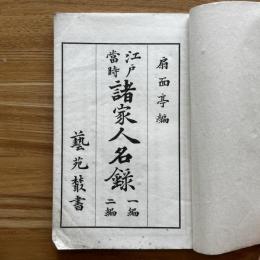 扇面亭編
江戸
當時
諸家人名録
一編
二編
藝苑叢書